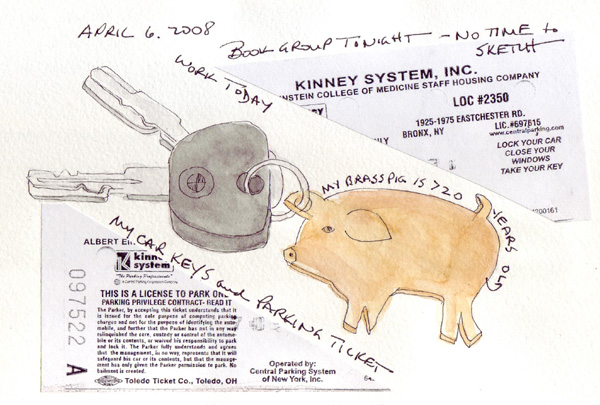 APRIL 6. 2008
BOOK GROUP TONIGHT - NO TIME to
SKETCH
WORK TODAY
KINNEY SYSTEM, INC.
NSTEIN COLLEGE OF MEDICINE STAFF HOUSING COMPANY
LOC #2350
1925-1975 EASTCHESTER RD.
BRONX, NY
LIC.#697615
www.centralparking.com
LOCK YOUR CAR
CLOSE YOUR
WINDOWS
TAKE YOUR KEY
200161
MY BRASS PIG IS >20
YEARS OLD
MY CAR KEYS and PARKING TICKET
ALBERT EI
kinney
system
"The Parking Professionals"
A Central Parking Corporation Company
THIS IS A LICENSE TO PARK ON
PARKING PRIVILEGE CONTRACT- READ IT
The Parker, by accepting this ticket understands that it
is issued for the sole purpose of computing parking
charges and not for the purpose of identifying the auto-
mobile, and further that the Parker has not in any way
relinquished the care, custody or control of the automo-
bile or its contents, or waived his responsibility to park
and lock it. The Parker fully understands and agrees
that the management, in no way, represents that it will
safeguard his car or its contents, but that the manage-
ment has only given the Parker permission to park. No
bailment is created.
Toledo Ticket Co., Toledo, OH
097522 A
Operated by:
Central Parking System
of New York, Inc.